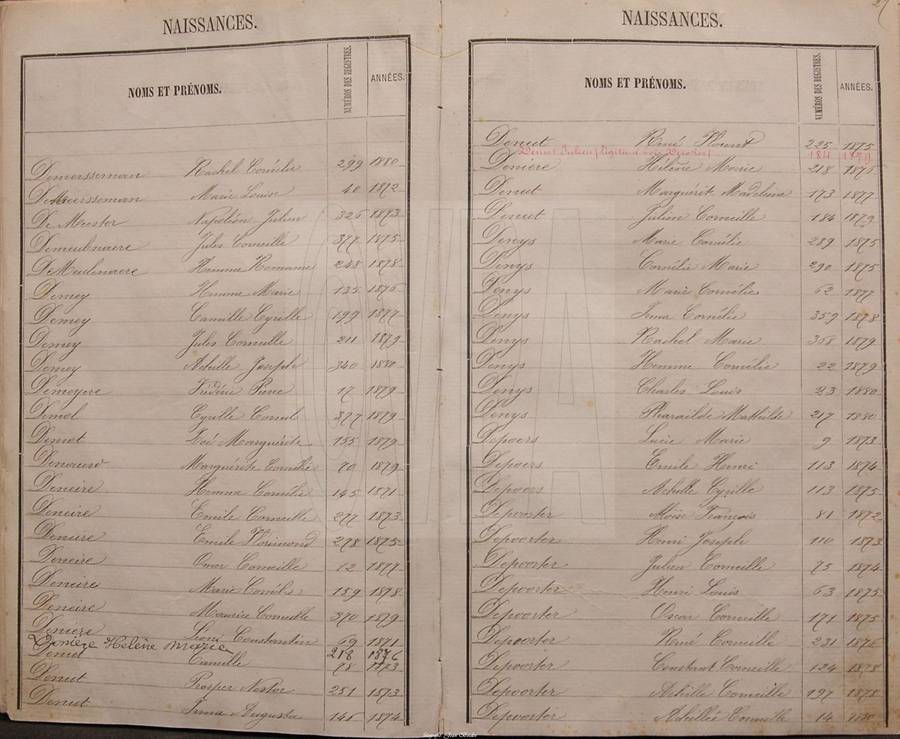 NAISSANCES.
NOMS ET PRÉNOMS. NUMÉROS DES REGISTRES. ANNÉES.
Rachel Cornélie 299 1880
Marie Louise 40 1872
De Meester Napoléon Julien 326 1873
Demeulnaere Jules Corneille 377 1875
DeMeulenaere Emma Romanie 248 1878
Demey Emma Marie 135 1876
Demey Camille Cyrille 199 1877
Demey Jules Corneille 211 1879
Demey Achille Joseph 340 1880
Demeyere 17 1879
Cyrille 377 1879
Marguérite 155 1879
Marguérite 70 1879
Deneire Emma Cornélie 145 1871
Deneire Emile Corneille 277 1873
Deneire Emile Florimond 278 1875
Deneire Omer Corneille 12 1877
Deneire Marie Cornélie 159 1878
Deneire Maurice Corneille 370 1879
Deniere Constantin 69 1871
Denière Hélène Marie 218 1876
Denut Camille 28 1873
Denut Prosper Nestor 251 1873
Denut Irma Augusta 145 1874
NAISSANCES.
NOMS ET PRÉNOMS. NUMÉROS DES REGISTRES. ANNÉES.
Denut René 225 1875
Denut Julien 184 1879
Deniere Hélène Marie 218 1876
Denut Marguérit Madelina 173 1877
Denut Julien Corneille 184 1879
Denys Marie Cornélie 289 1875
Denys Cornélie Marie 290 1875
Denys Marie Cornélie 62 1877
Denys Irma Cornélie 359 1878
Denys Rachel Marie 368 1879
Denys Emma Cornélie 22 1879
Denys Charles Louis 23 1880
Denys Pharailde Mathilde 217 1880
Depoers Lucie Marie 9 1873
Depoers Emile Henri 113 1874
Depoers Achille Cyrille 113 1875
Depoorter Moïse François 81 1872
Depoorter Henri Joseph 110 1873
Depoorter Julien Corneille 75 1874
Depoorter Henri Louis 63 1875
Depoorter Oscar Corneille 171 1875
Depoorter René Corneille 231 1876
Depoorter Constant Corneille 124 1878
Depoorter Achille Corneille 197 1878
Depoorter Achille Corneille 14 1880